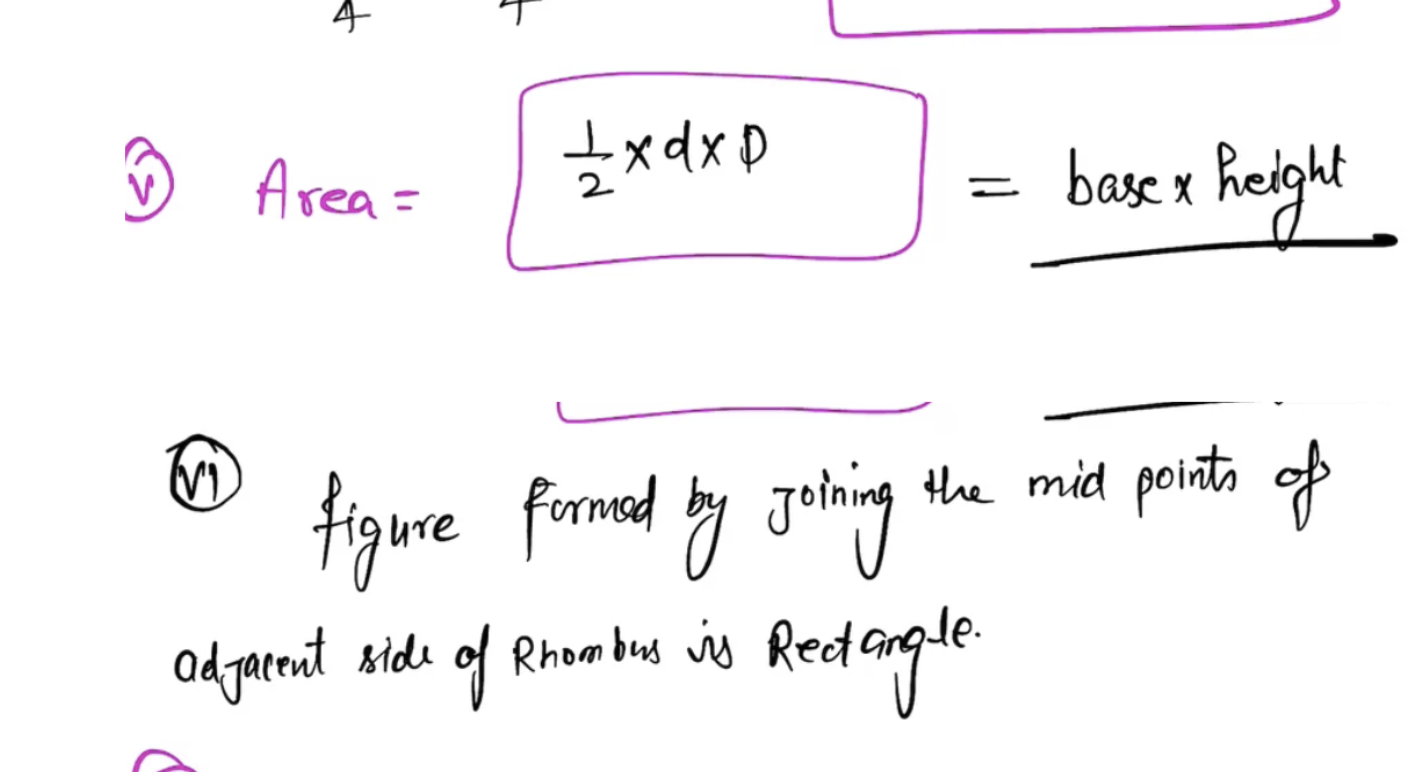 4 4
(v) Area = 1/2 x d x D = base x height
(vi) figure formed by Joining the mid points of
adjacent side of Rhombus is Rectangle.